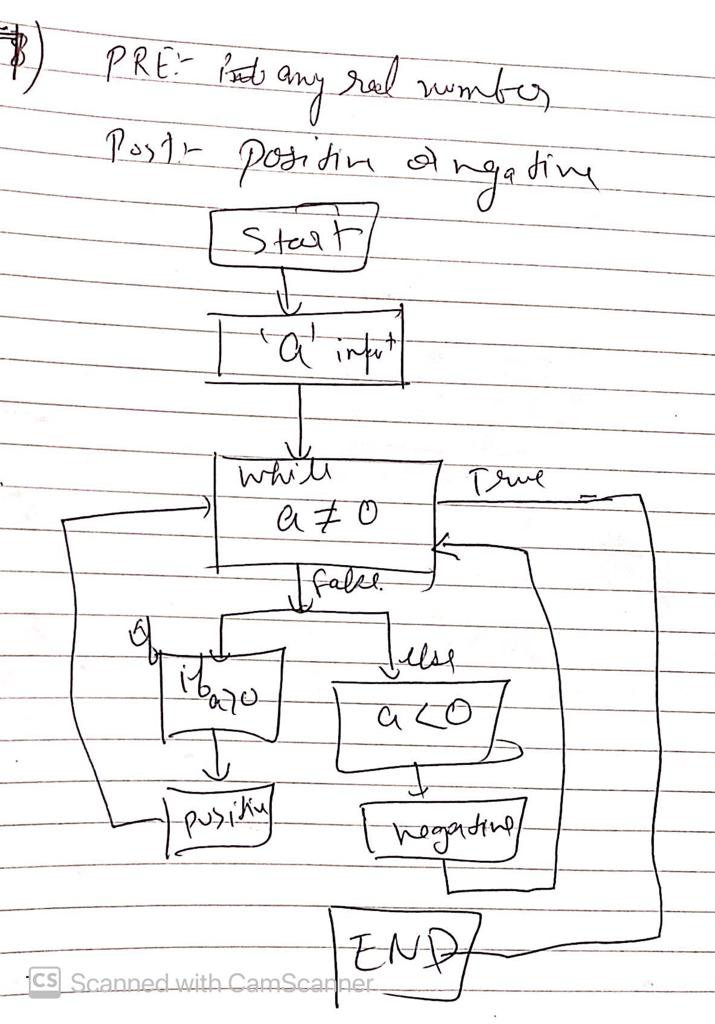 B)
PRE:- any real number
Post:- positive or negative
Start
'a' input
while
a ≠ 0
True
false
if a>0
else
a<0
positive
negative
END
CS Scanned with CamScanner